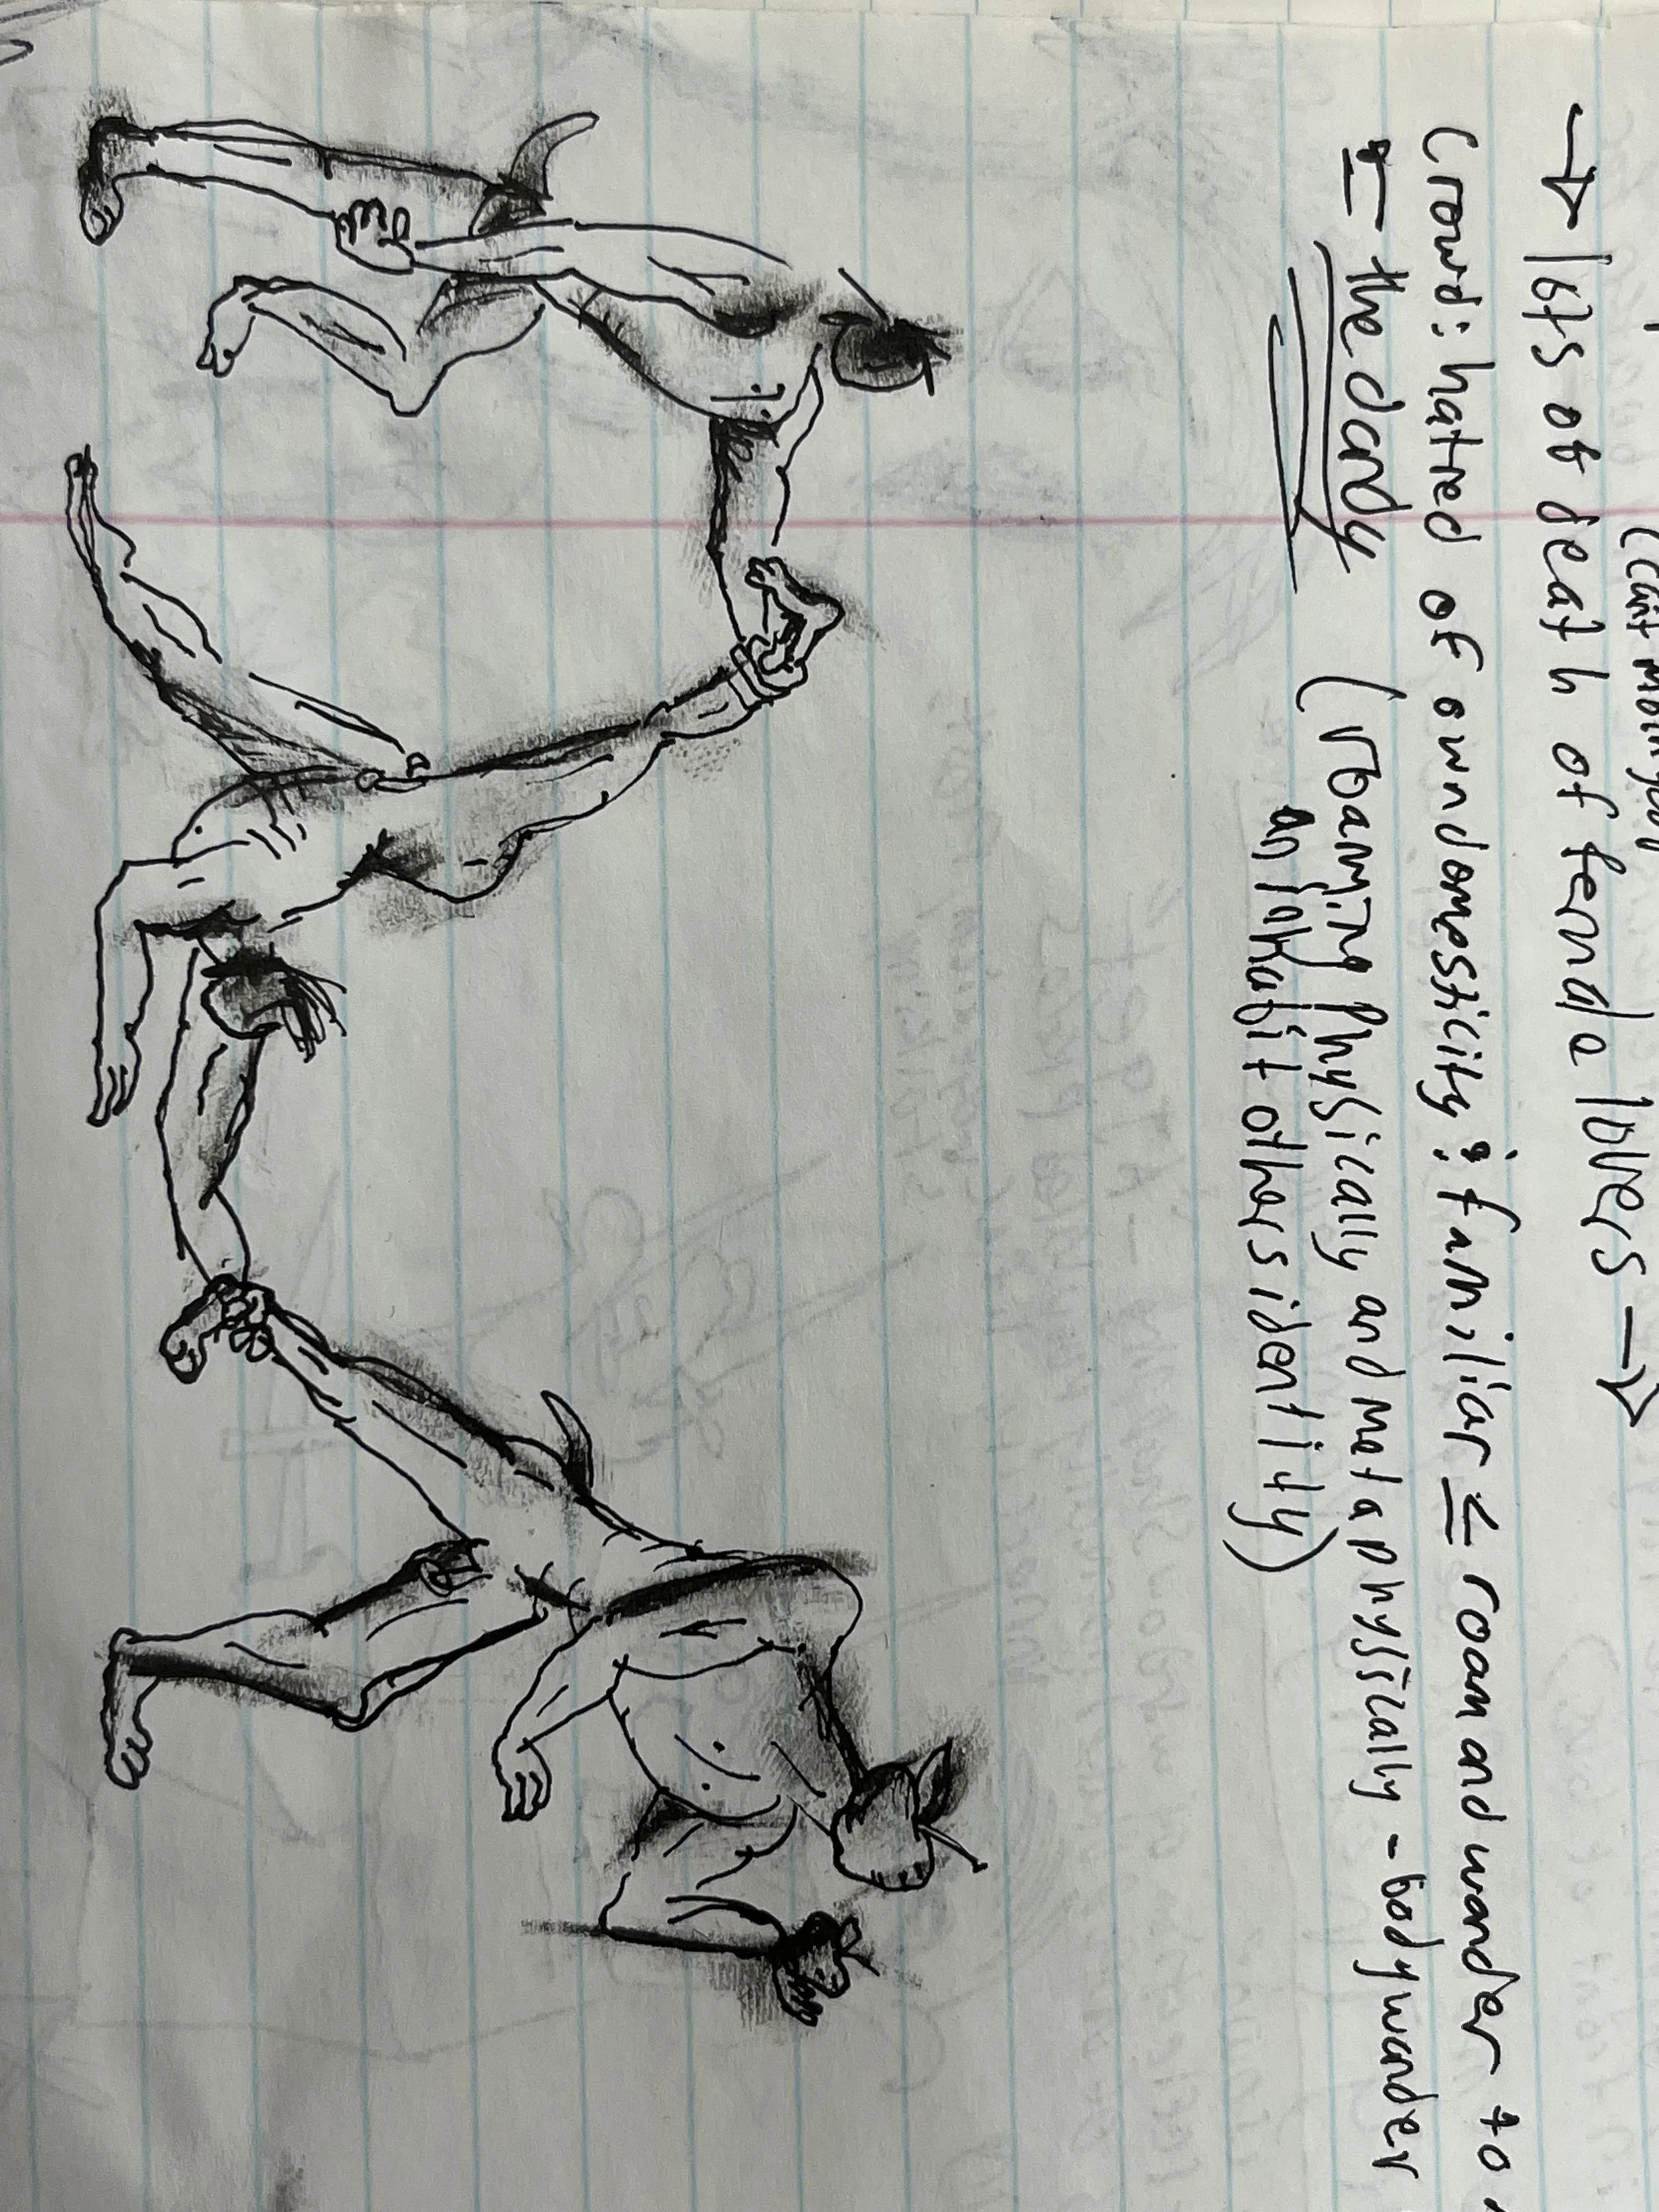 (can't
→ lots of death of female lovers →
Crowd: hatred of own domesticity & familiar ≤ roam and wander to
= the dandy (roaming physically and metaphysically - body wander
an inhabit others identity)